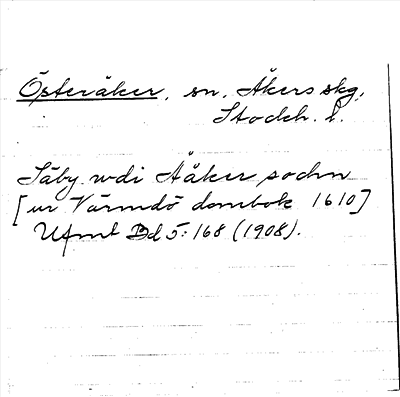 Österåker, sn. Åkers skg,
Stockh. l.
Säby wdi Ååker sochn
[ur Värmdö dombok 1610]
Ufmt Bd 5: 168 (1908).